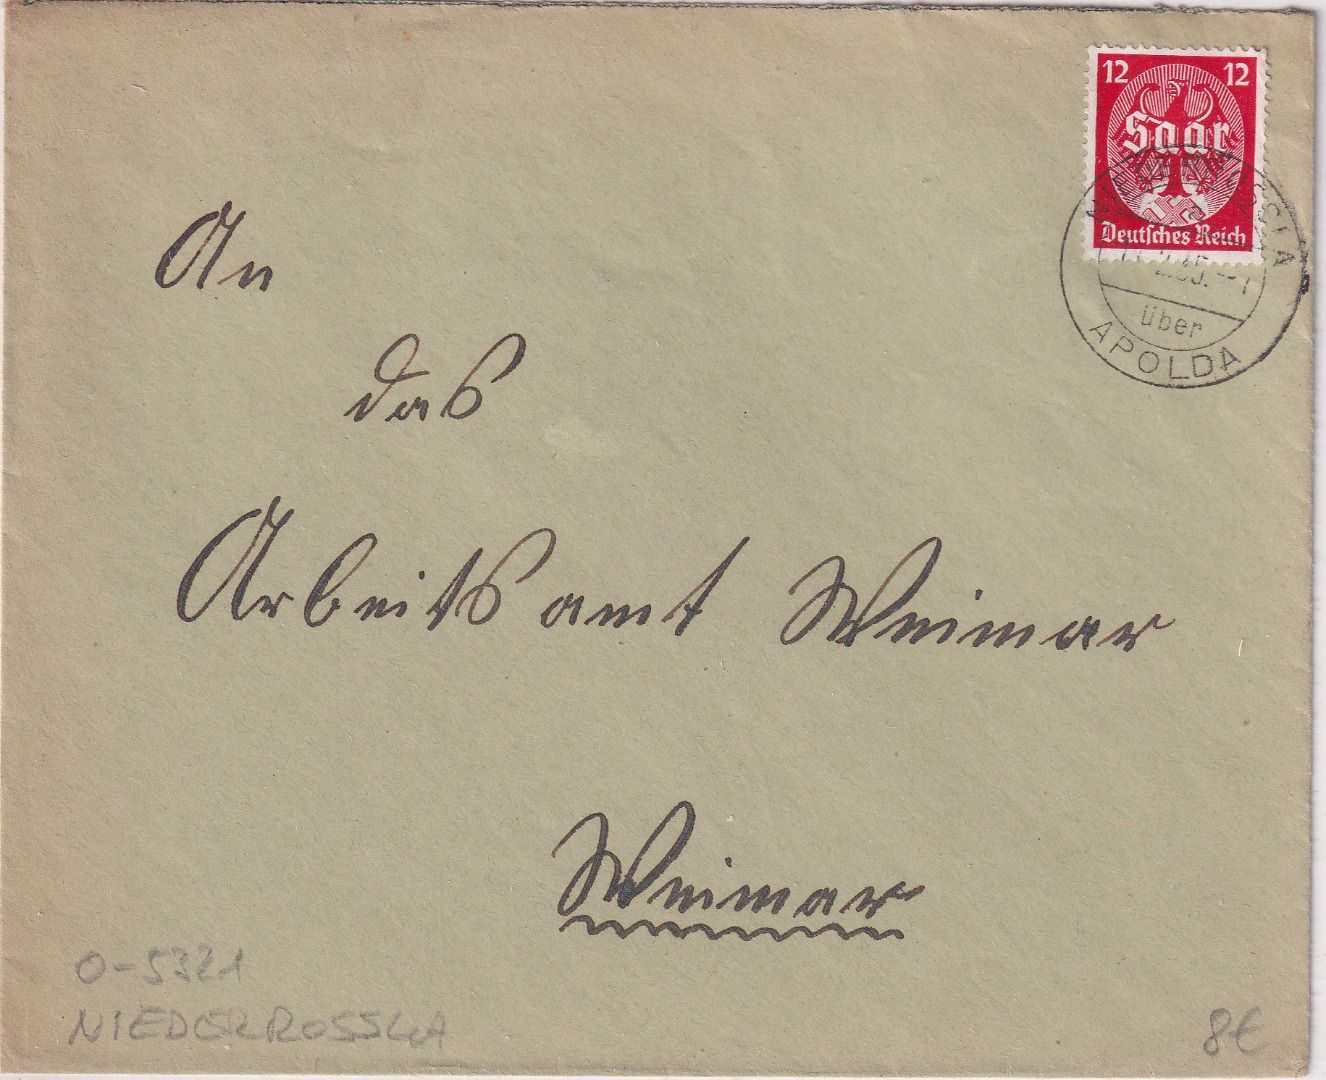 12 12
Saar
Deutsches Reich
über
APOLDA
An
das
Arbeitsamt Weimar
Weimar
O-5321
NIEDERROSSLA
8€